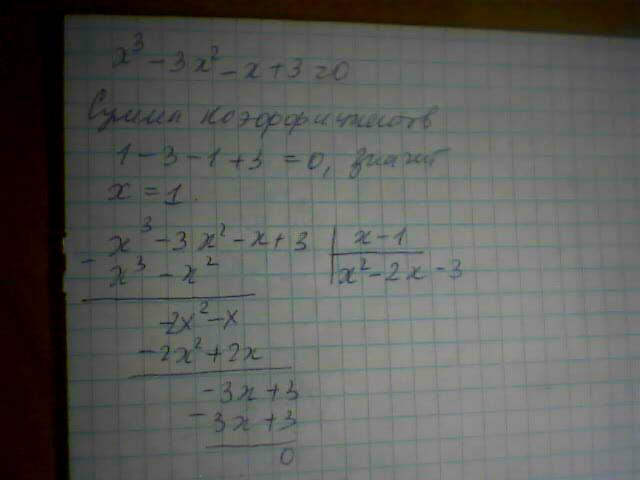 x³ - 3x² - x + 3 = 0
Сумма коэффициентов
1 - 3 - 1 + 3 = 0, значит
x = 1.
- x³ - 3x² - x + 3 | x - 1
x³ - x² | x² - 2x - 3
-2x² - x
-2x² + 2x
-3x + 3
-3x + 3
0